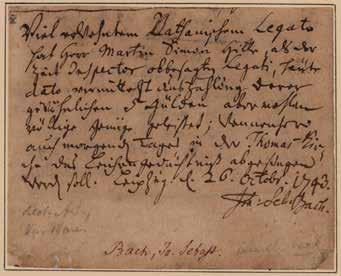 Viel erwehntem Nathanischem Legato
hat Herr Martin Simon Hille, als der
Zeit Inspector obbesagten Legati, heute
dato vermittelst Auszahlung derer
gewöhnlichen 5 Gülden abermahlen
völlige genüge geleistet; dannenhero
auch morgendes Tages in der Thomas-Kir-
che das Leichengedächtniß abgesungen
werden soll. Leipzig. d. 26. Octobr. 1743.
Joh: Seb: Bach.
Bach, Jo. Sebast.